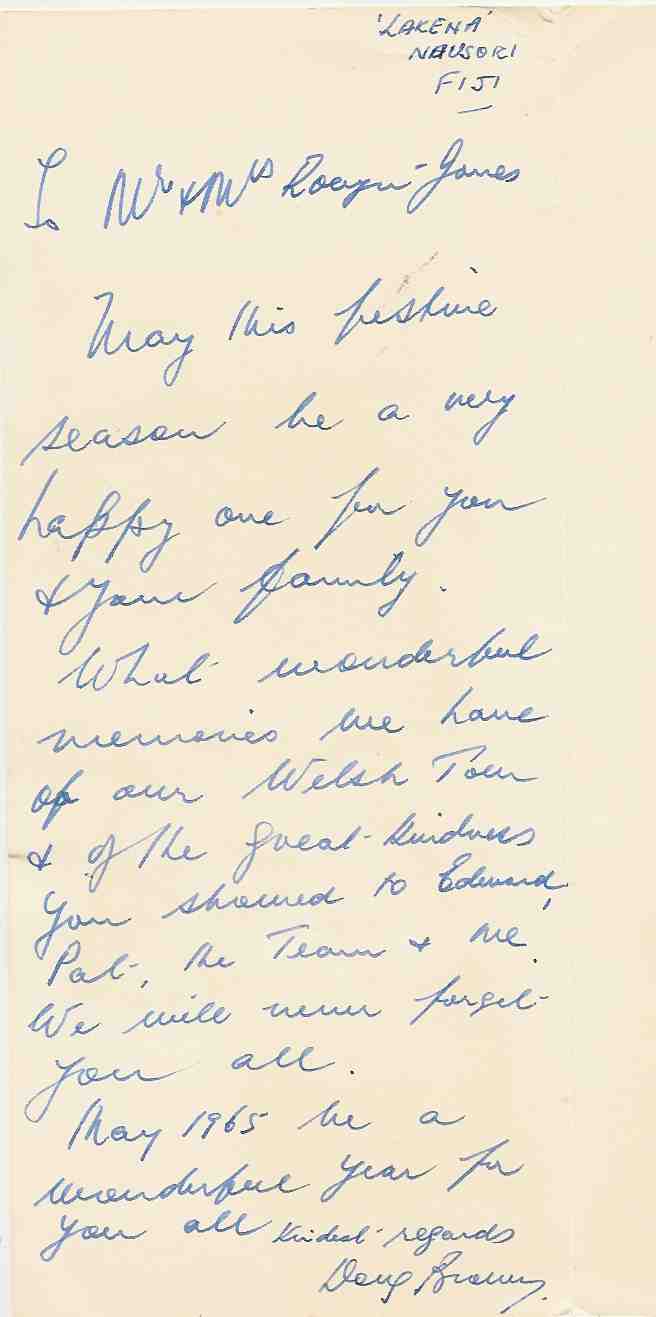 'LAKENA'
NAUSORI
FIJI
To Mr & Mrs Rocyn-Jones
May this festive
season be a very
happy one for you
& your family.
What wonderful
memories we have
of our Welsh Tour
& of the great kindness
you showed to Edward,
Pat, the Team & me.
We will never forget
you all.
May 1965 be a
wonderful year for
you all kindest regards
Doug Brown.